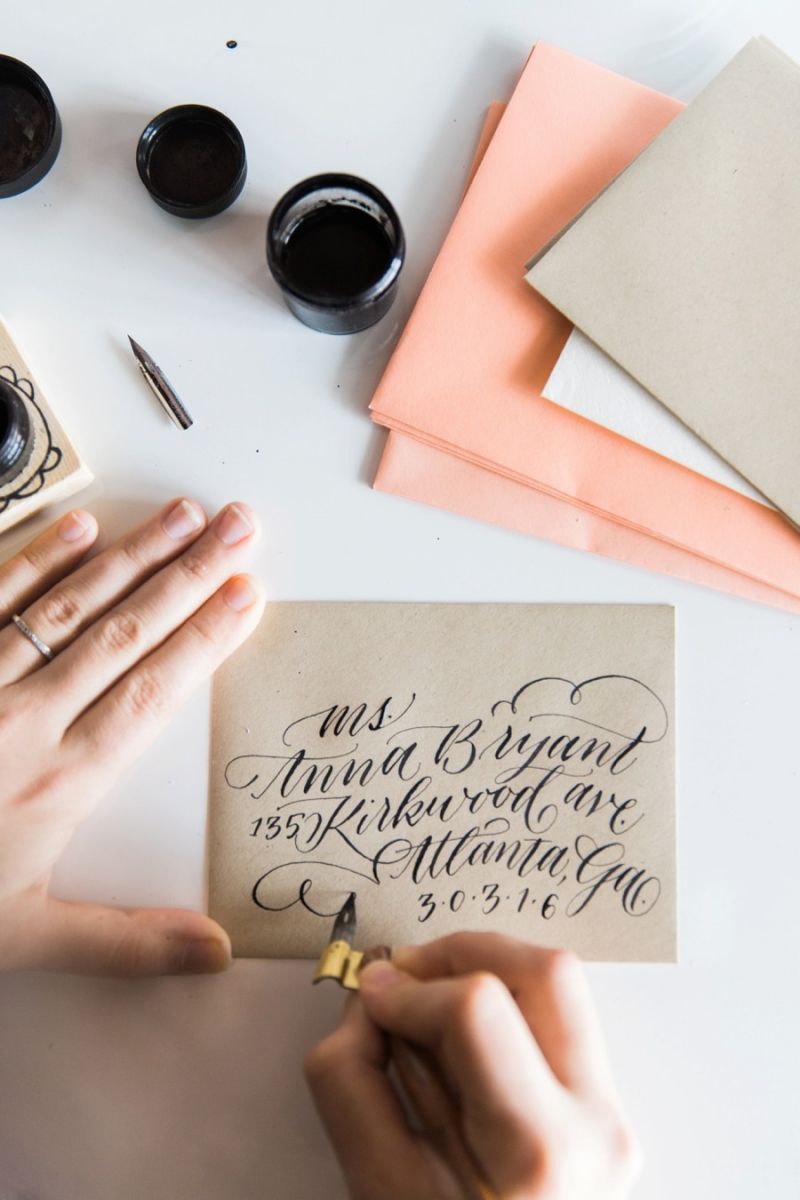 ms.
Anna Bryant
1357 Kirkwood ave
Atlanta, Ga.
3·0·3·1·6